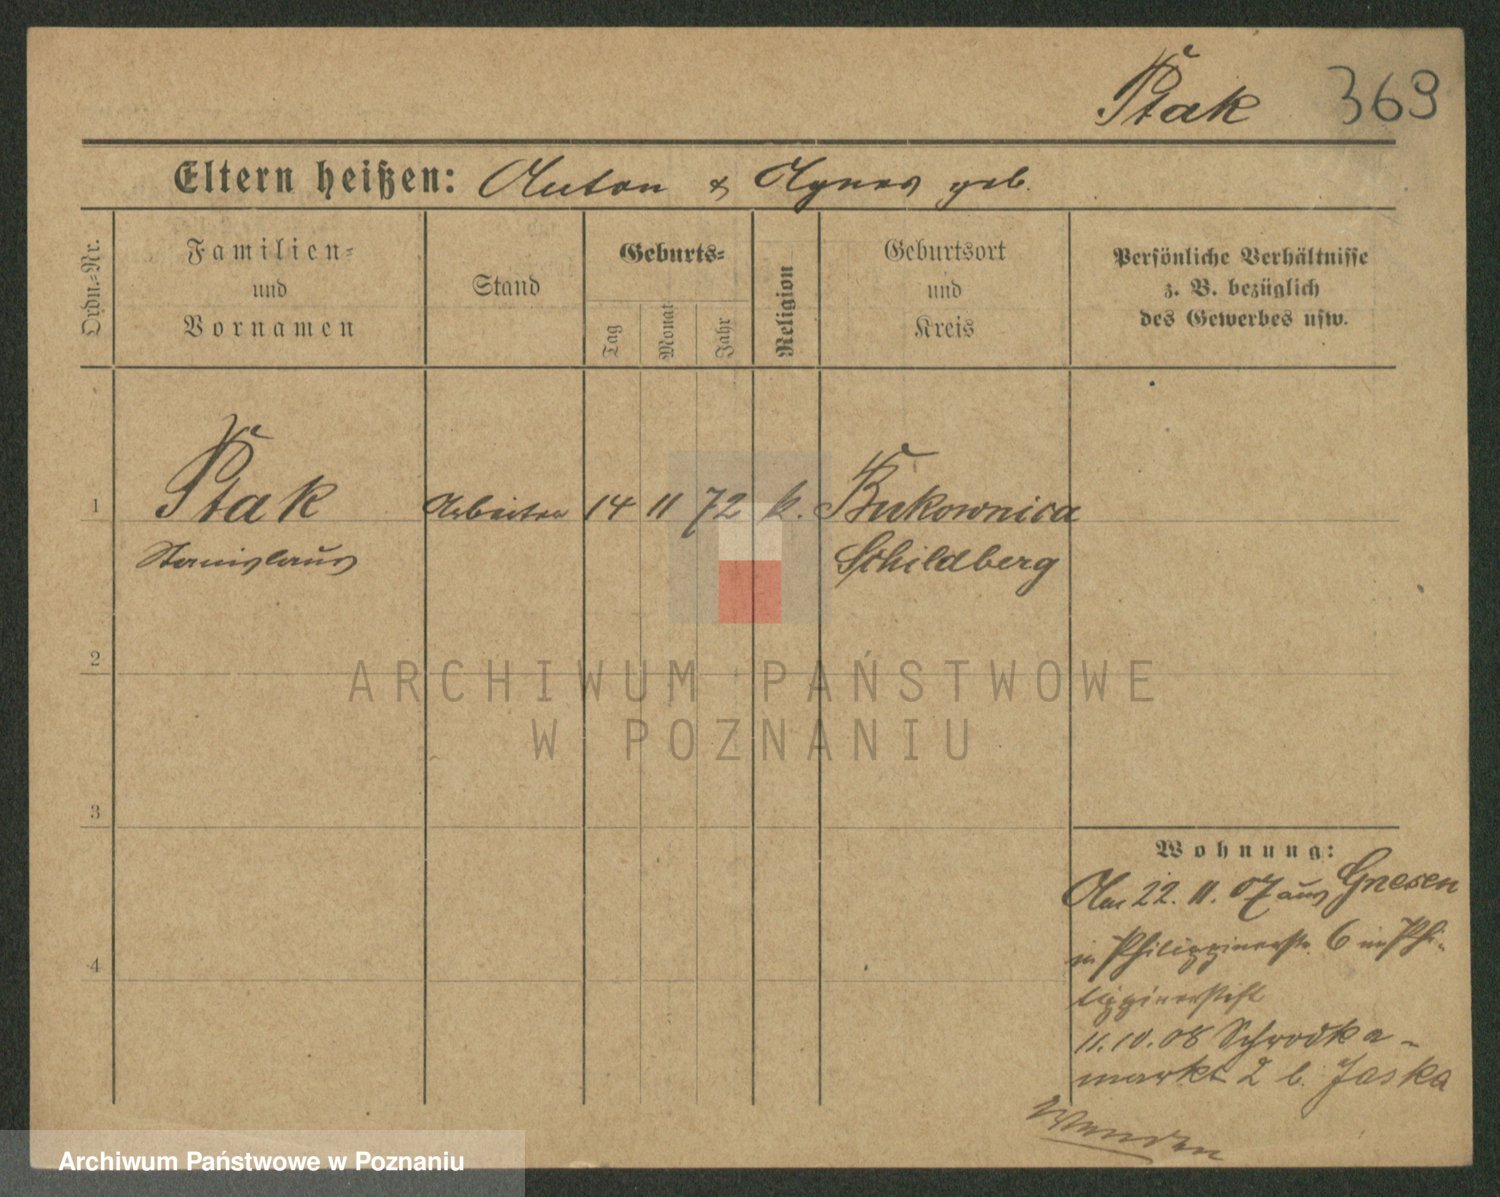 Ptak 369
Eltern heißen: Anton & Agnes geb.
Ordn.-Nr.
Familien-
und
Vornamen
Stand
Geburts-
Tag
Monat
Jahr
Religion
Geburtsort
und
Kreis
Persönliche Verhältnisse
z. B. bezüglich
des Gewerbes usw.
1 Ptak Arbeiter 14 11 72 k. Bukownica
Stanislaus Schildberg
2
ARCHIWUM PAŃSTWOWE
W POZNANIU
3
Wohnung:
Am 22. 11. 07 aus Gnesen
in Philippinerstr. 6 im Phi-
lippinerstift
11.10.08 Schrodka-
markt 2 b. Jaska
4
Wenden
Archiwum Państwowe w Poznaniu